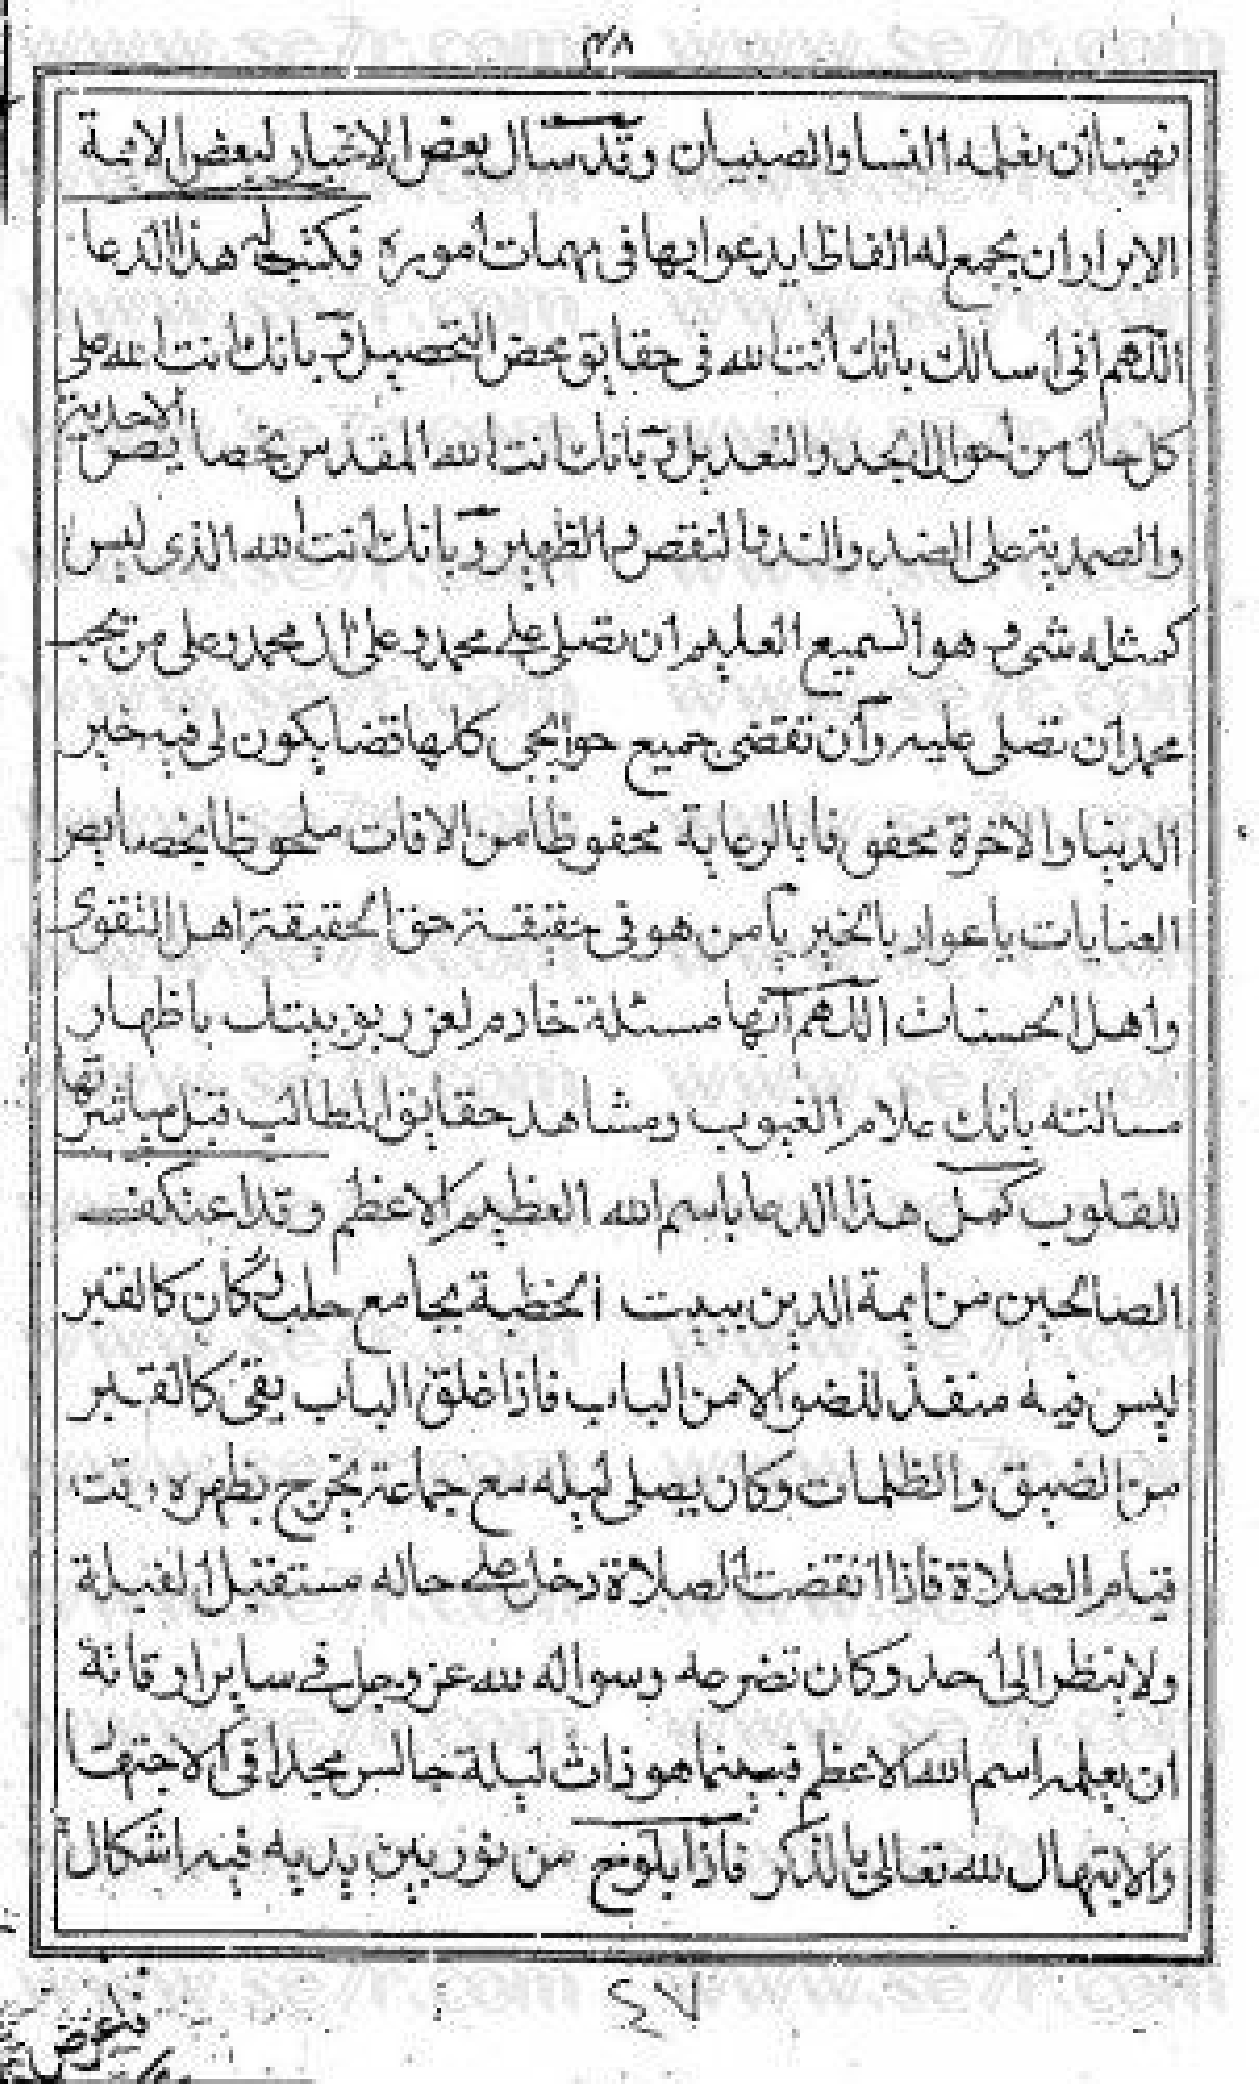 ٣٨
نهينا أن نعلمه النسا والصبيان وقد سأل بعض الاخيار لبعض الائمة
الابرار ان يجمع له الفاظا يدعوا بها فى مهمات أموره فكتب له هذا الدعا
اللهم انى أسالك بانك أنت الله فى حقايق محض التخصيص وبانك انت الله على
كل حال من أحوال الجد والتعديل وبانك انت الله المقدس بخصايص الاحدية
والصمدية على الضد والند والنقص والظهير وبانك أنت الله الذى ليس
كمثله شى وهو السميع العليم ان تصلى على محمد وعلى ال محمد وعلى من يحب
محمد أن تصلى عليه وأن تقضى جميع حوايجى كلها قضا يكون لى فيه خير
الدنيا والاخرة محفوفا بالرعاية محفوظا من الافات ملحوظا بخصايص
العنايات يا عواد بالخير يا من هو فى حقيقة حق الحقيقة اهل التقوى
واهل الحسنات اللهم انها مسئلة خادم لعز ربوبيتك باظهار
مسالته بانك علام الغيوب ومشاهد حقايق المطالب قبل مباشرتها
للقلوب كمل هذا الدعا باسم الله العظيم الاعظم وقد اعتكف
الصالحين من أيمة الدين ببيت الخطبة بجامع حلب وكان كالقبر
ليس فيه منفذ للضو الا من الباب فاذا غلق الباب بقى كالقبر
من الضيق والظلمات وكان يصلى ليله مع جماعة يخرج بظهره وقت
قيام الصلاة فاذا انقضت الصلاة دخل على حاله مستقبل القبلة
ولا ينظر الى أحد وكان تضرعه وسواله لله عز وجل فى ساير اوقاته
ان يعلمه اسم الله الاعظم فبينما هو ذات ليلة جالس مجدا فى الاجتهاد
والابتهال لله تعالى بالذكر فاذا بلوح من نور بين يديه فيه اشكال
٤٧